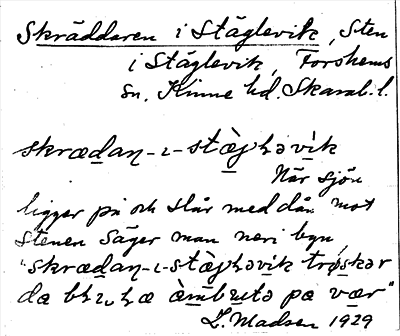 Skräddaren i Stäglevik, Sten
i Stäglevik, Forshems
sn. Kinne hd. Skarab. l.
skrædaɳ-ı-stæ̀jləvik
När sjön
ligger på och slår med dån mot
stenen säger man neri byn
"skrædaɳ-ı-stæ̀jləvik trøskər
da blı æ̀mbɯtə pa vær"
L. Madsen 1929